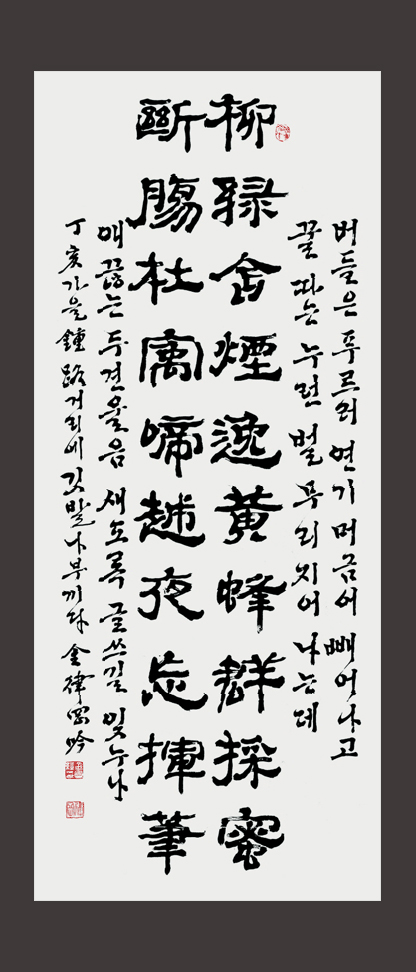 버들은 푸르러 연기 머금어 빼어나고
꿀 따는 누런 벌 무리지어 나는데
柳綠含煙逸黃蜂群採蜜
斷腸杜寓啼越夜忘揮筆
애 끊는 두견 울음 새도록 글쓰길 잊누나
丁亥가을 鍾路거리에 깃발 나부끼다 金律岡吟